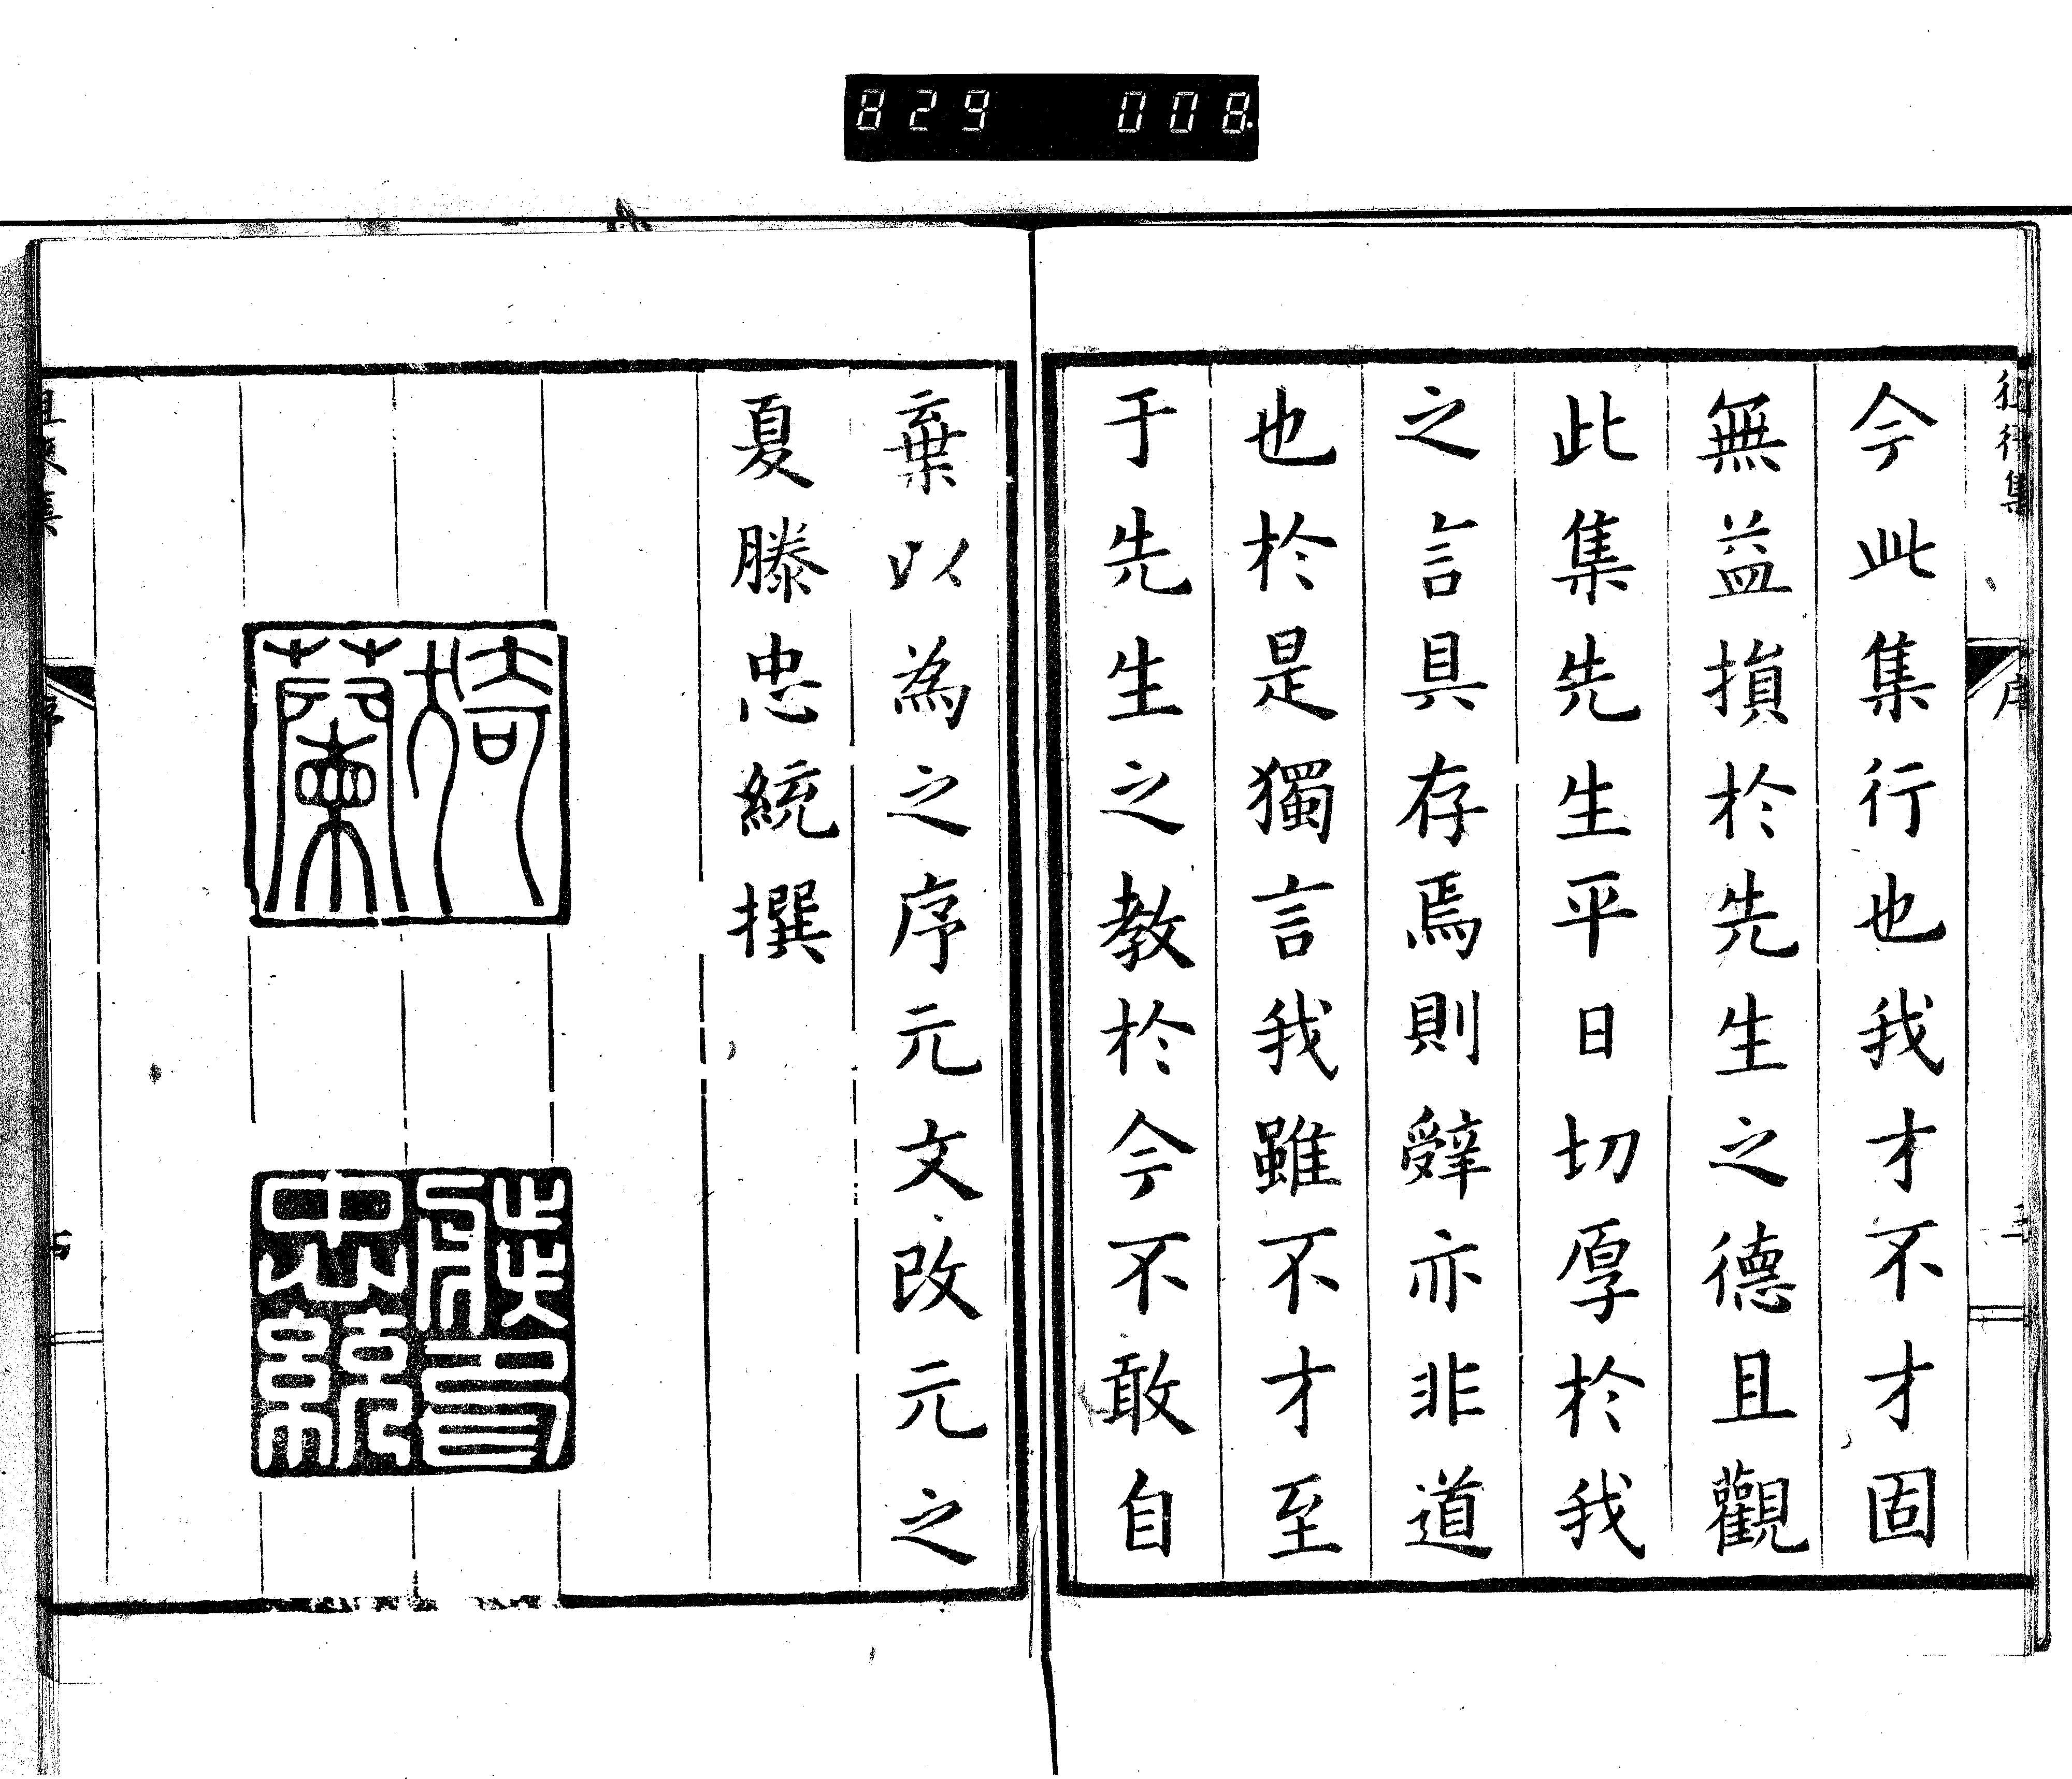 829 008.
今此集行也我才不才固
無益損於先生之德且觀
此集先生平日切厚於我
之言具存焉則辤亦非道
也於是獨言我雖不才至
于先生之教於今不敢自
棄以為之序元文改元之
夏滕忠統撰
猗蘭
滕印忠統